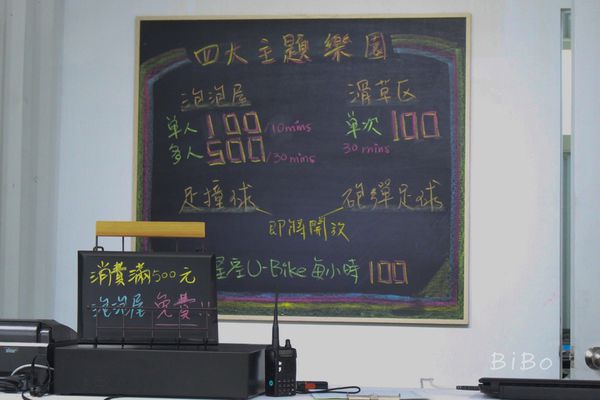 四大主題樂園
泡泡屋
单人 100/10mins
多人 500/30mins
滑草区
单次 100
30 mins
足撞球
砲彈足球
即將開放
星星U-Bike每小時 100
消費滿500元
泡泡屋免費!!
BiBo